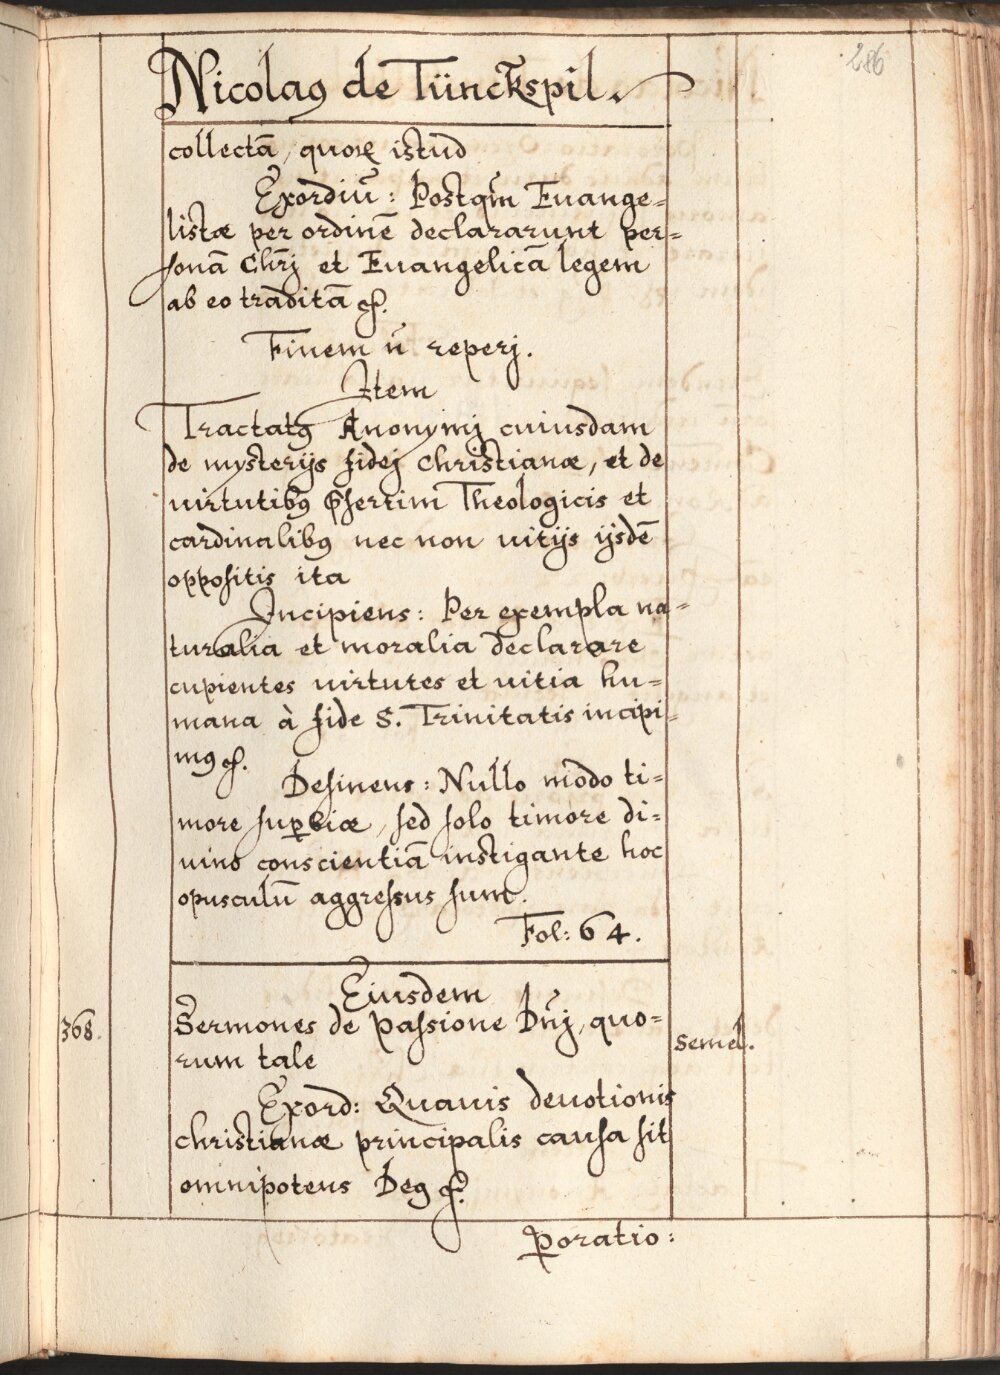 286
Nicolaꝰ de Tünckspil.
collectā, quoꝝ istud
Exordiū: Postqm̄ Euange=
listæ per ordinē declararunt per=
sonā Chrj̄ et Euangelicā legem
ab eo traditā &.
Finem n̄ reperj.
Item
Tractatꝰ Anonymj cuiusdam
de mysterijs fidej Christianæ, et de
uirtutibꝰ p̄sertim Theologicis et
cardinalibꝰ nec non uitijs ijsdē
oppositis ita
Incipiens: Per exempla na=
turalia et moralia declarare
cupientes uirtutes et uitia hu=
mana à fide S. Trinitatis incipi=
mꝰ &.
Desinens: Nullo modo ti=
more suꝑbiæ, sed solo timore di=
uino conscientiā instigante hoc
opusculū aggressus sum.
Fol: 64.
Eiusdem
368. Sermones de passione Dn̄j, quo= semel.
rum tale
Exord: Quauis deuotionis
christianæ principalis causa sit
omnipotens Deꝰ &.
ꝑoratio: